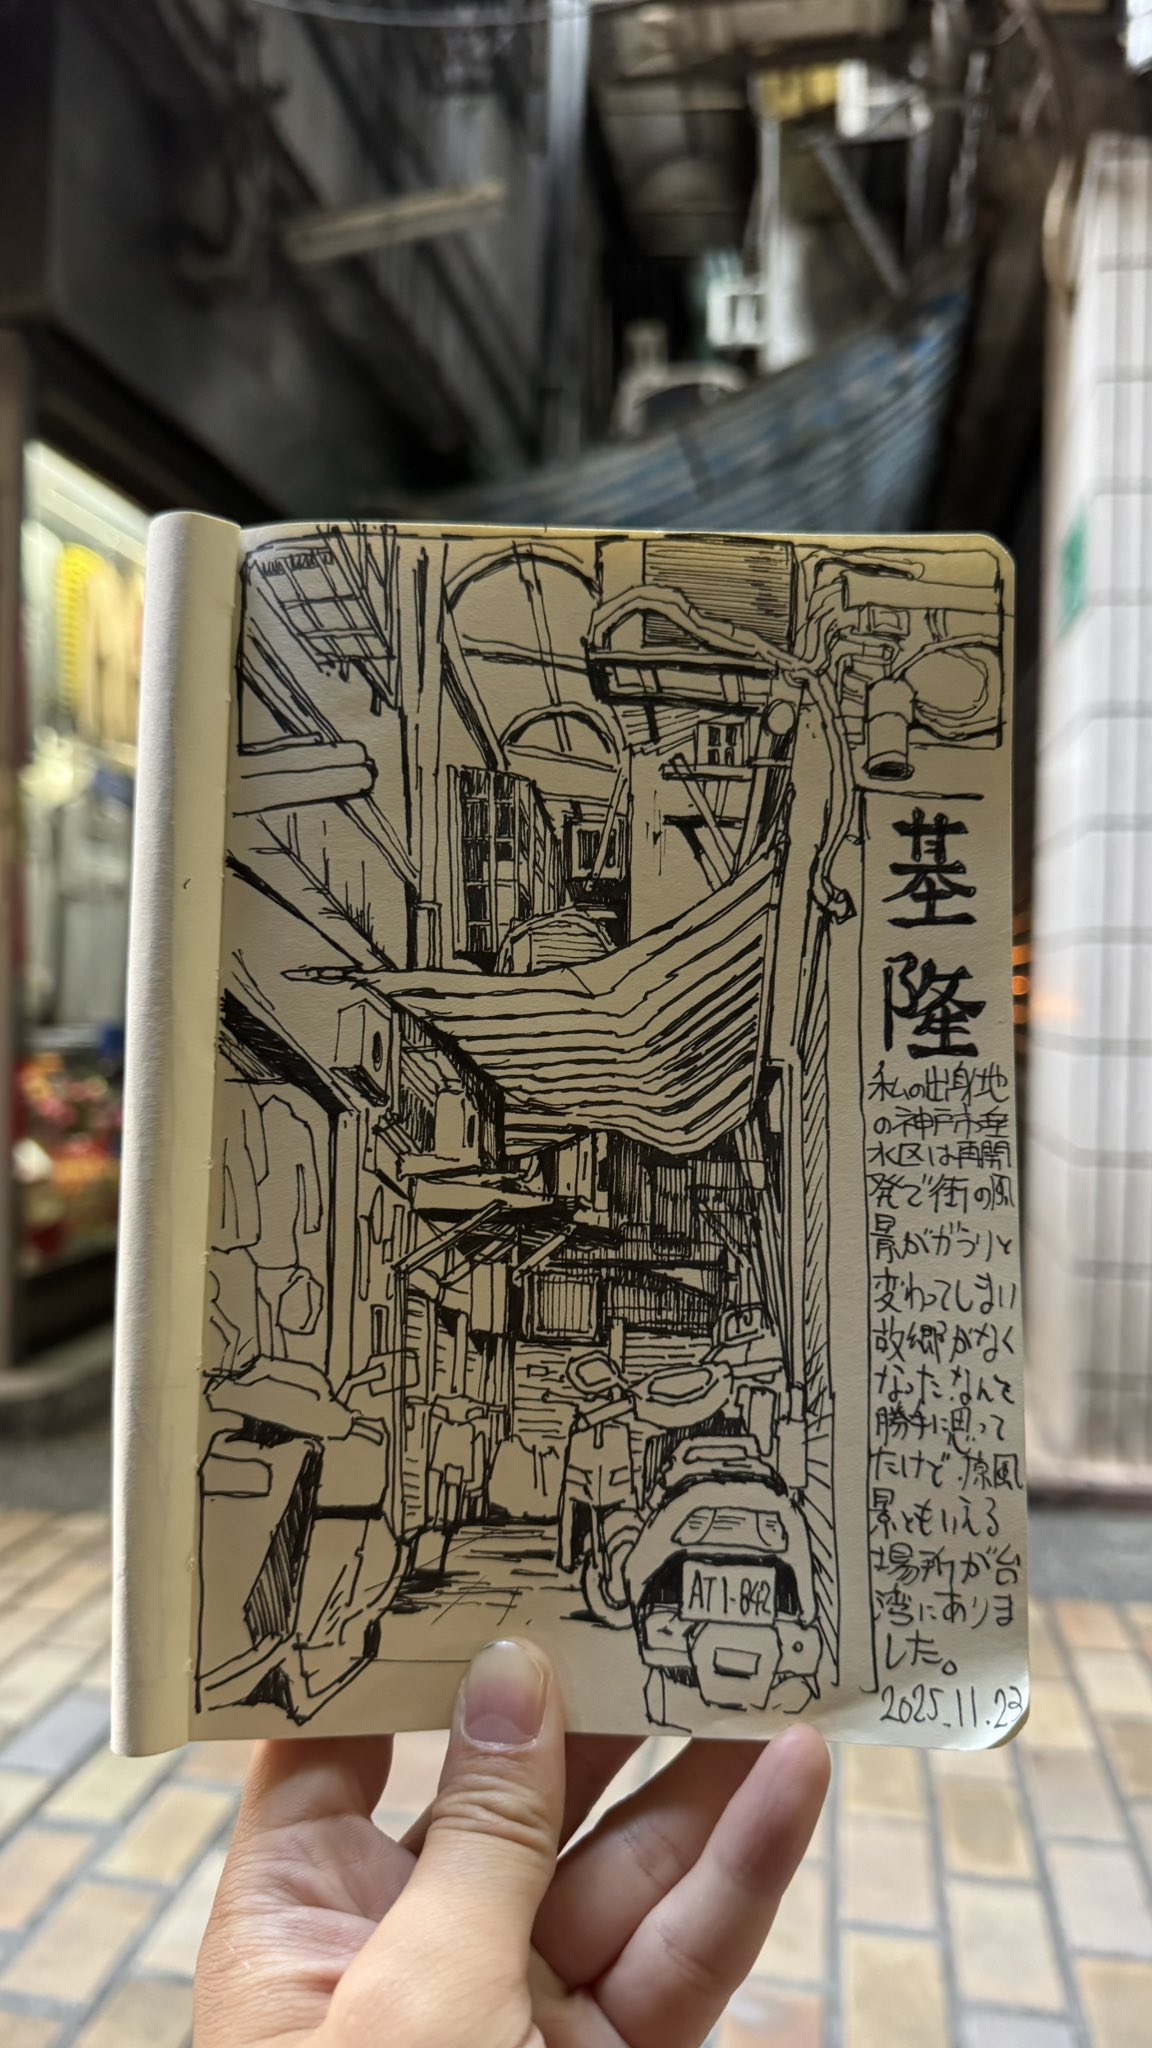 基
隆
私の出身地
の神戸市垂
水区は再開
発で街の風
景ががらりと
変わってしまい
故郷がなく
なったなんて
勝手に思って
たけど、原風
景ともいえる
場所が台
湾にありま
した。
2025.11.23
AT1-842